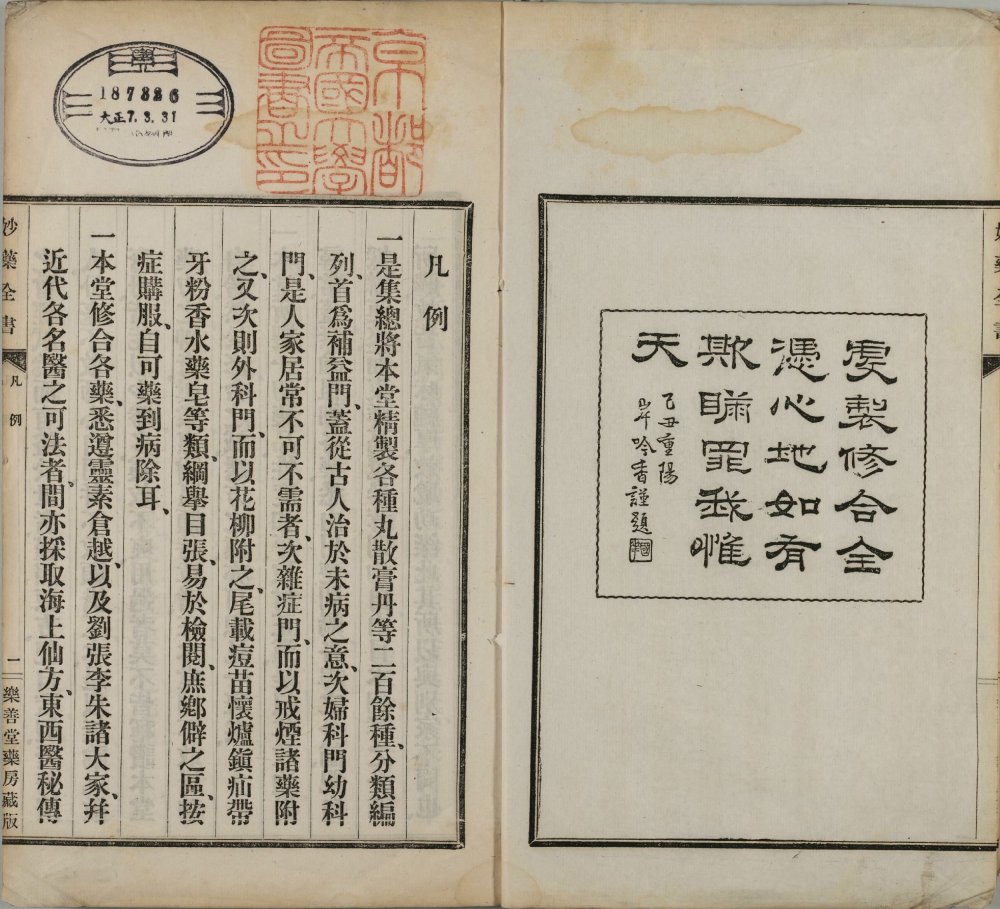 虔製修合全
憑心地如有
欺瞞罪我惟
天
己丑重陽
岸吟香謹題
妙藥全書
京都
帝國大學
圖書之印
187326
大正7.3.31
凡例
一是集總將本堂精製各種丸散膏丹等二百餘種、分類編
列、首爲補益門、蓋從古人治於未病之意、次婦科門幼科
門、是人家居常不可不需者、次雜症門、而以戒煙諸藥附
之、又次則外科門、而以花柳附之、尾載痘苗懷爐鎭疝帶
牙粉香水藥皂等類、綱舉目張、易於檢閱、庶鄉僻之區、按
症購服、自可藥到病除耳、
一本堂修合各藥、悉遵靈素倉越、以及劉張李朱諸大家、幷
近代各名醫之可法者、間亦採取海上仙方、東西醫秘傳
妙藥全書
凡例
二
樂善堂藥房藏版